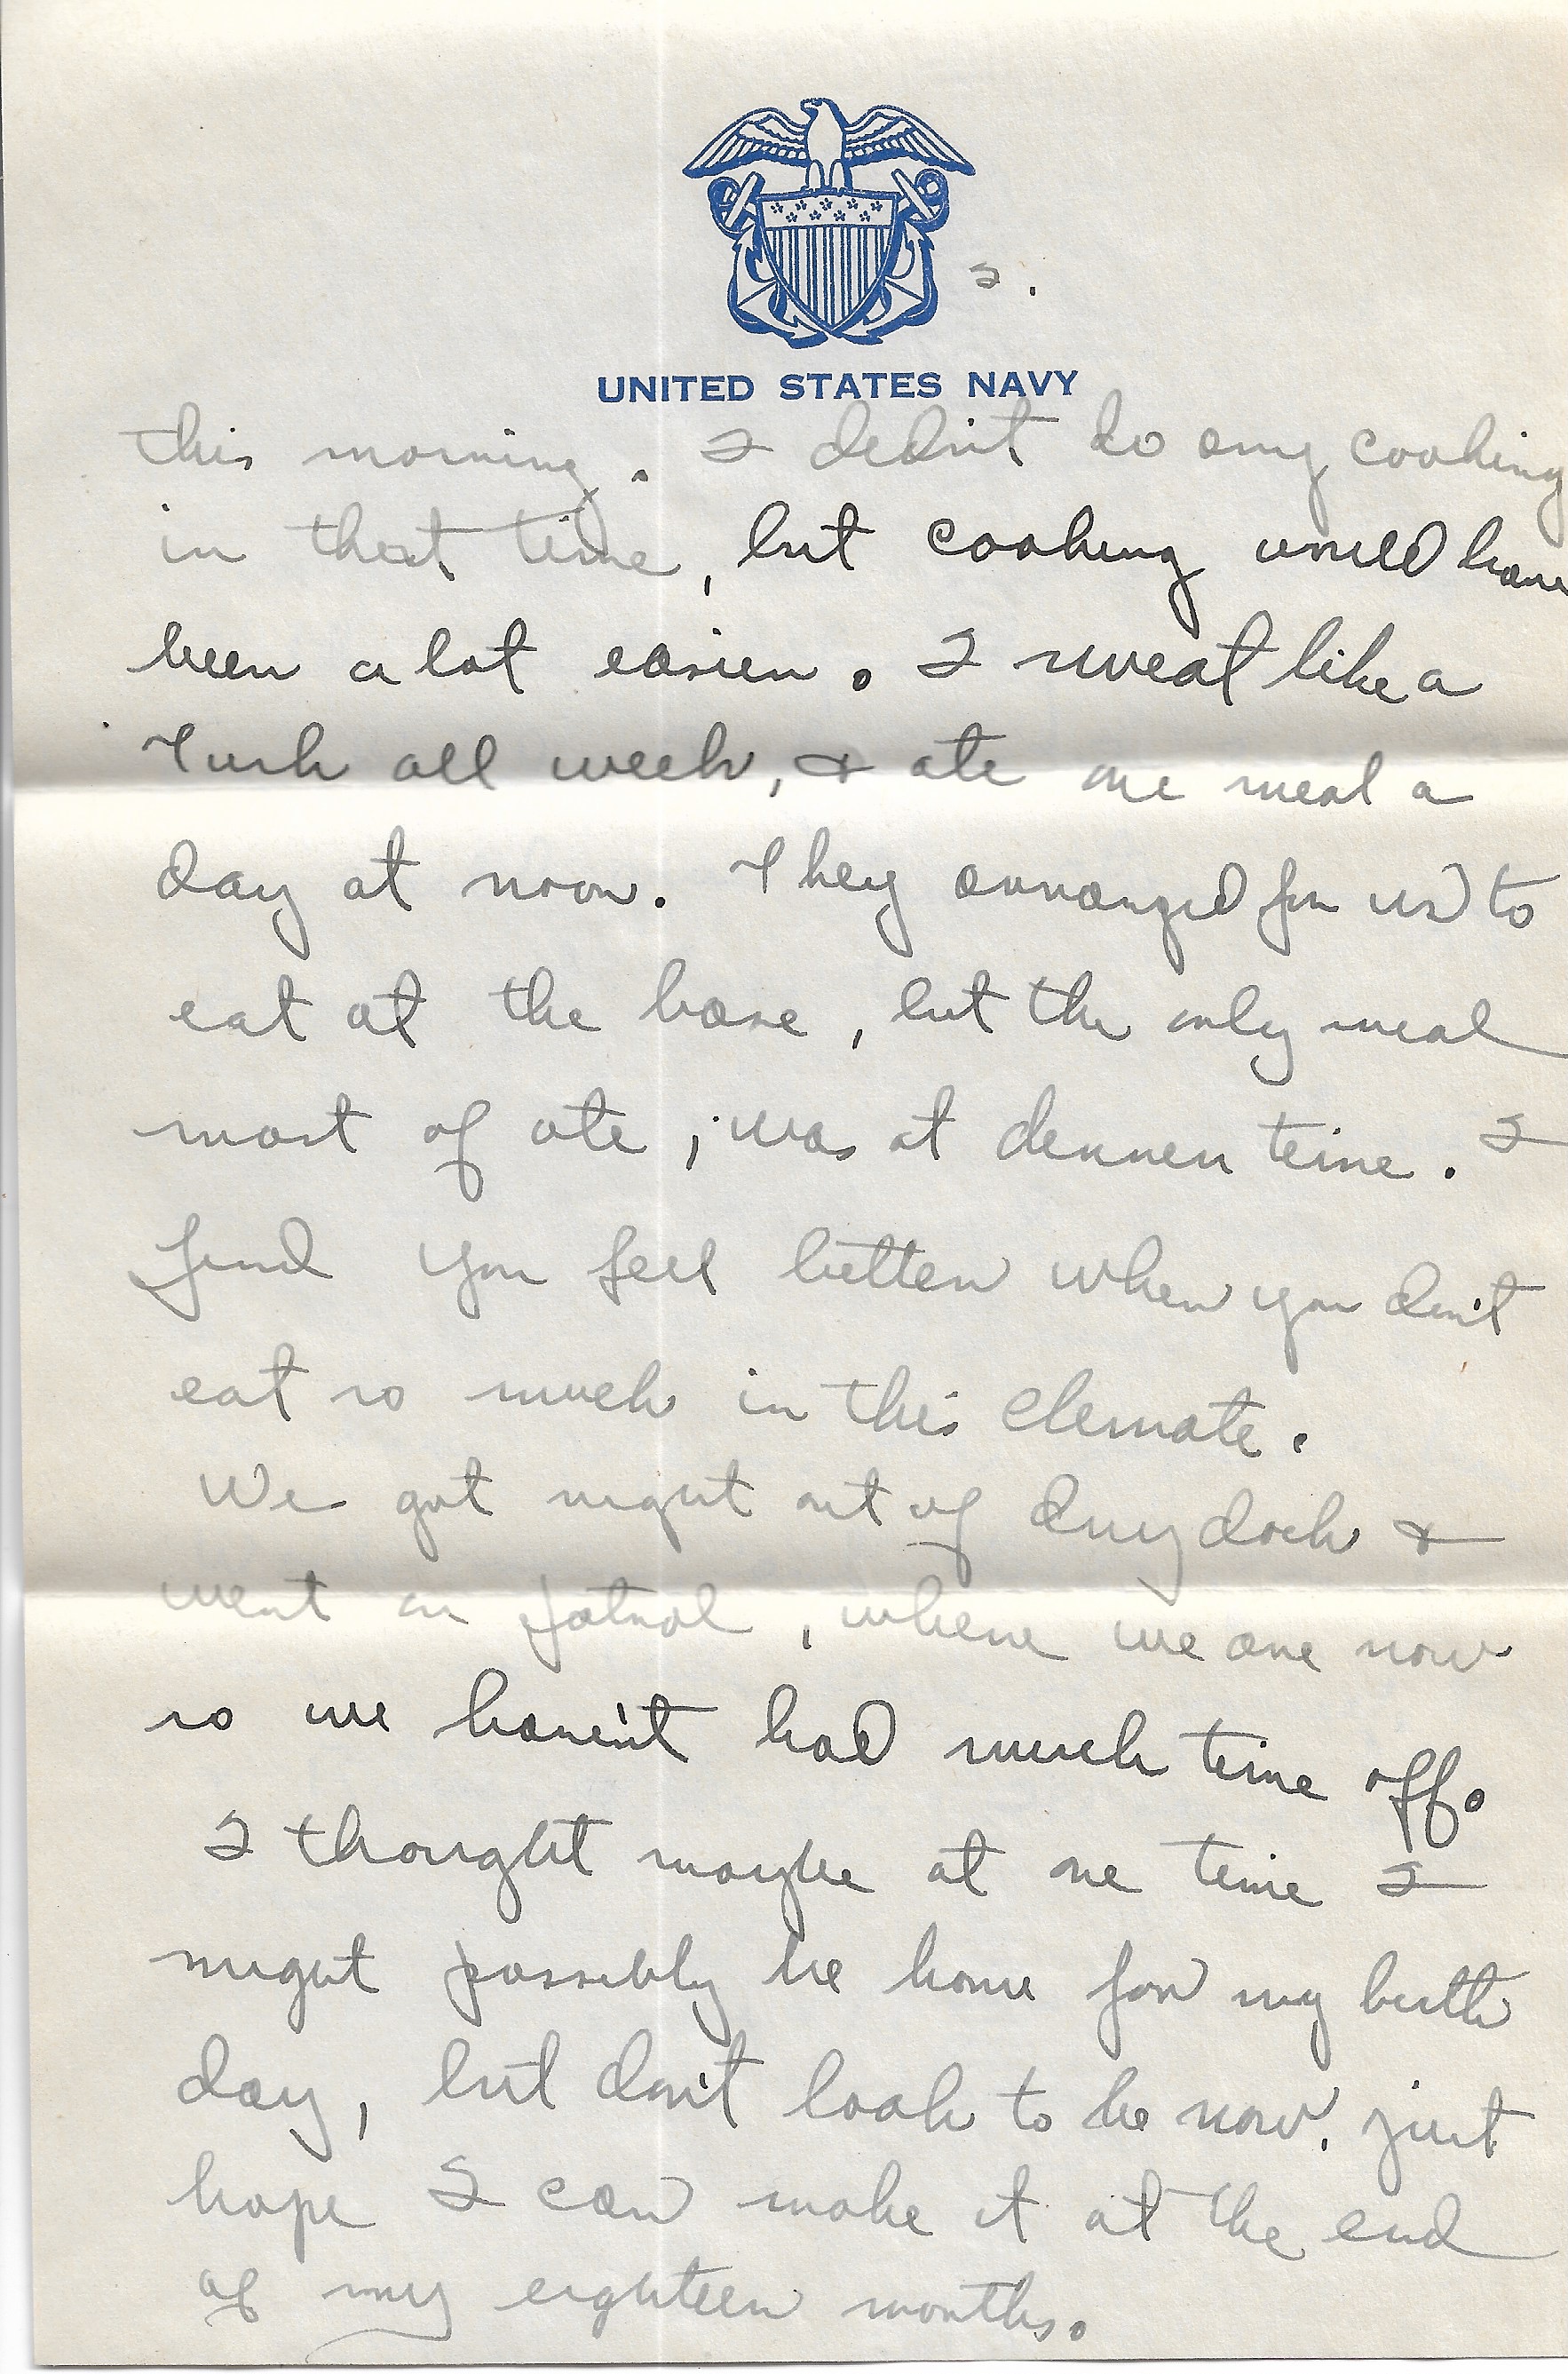 2.
UNITED STATES NAVY
this morning. I didn't do any cooking
in that time, but cooking would have
been a lot easier. I sweat like a
Turk all week, & ate one meal a
day at noon. They arranged for us to
eat at the base, but the only meal
most of ate, was at dinner time. I
find you feel better when you don't
eat so much in this climate.
We got right out of dry dock &
went on patrol, where we are now
so we haven't had much time off.
I thought maybe at one time I
might possibly be home for my birth
day, but don't look to be now. just
hope I can make it at the end
of my eighteen months.